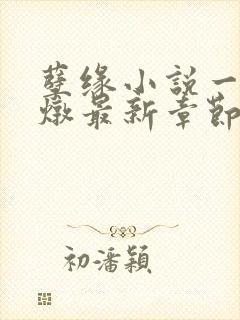 孽缘小説一
燉最新章節
初潘穎